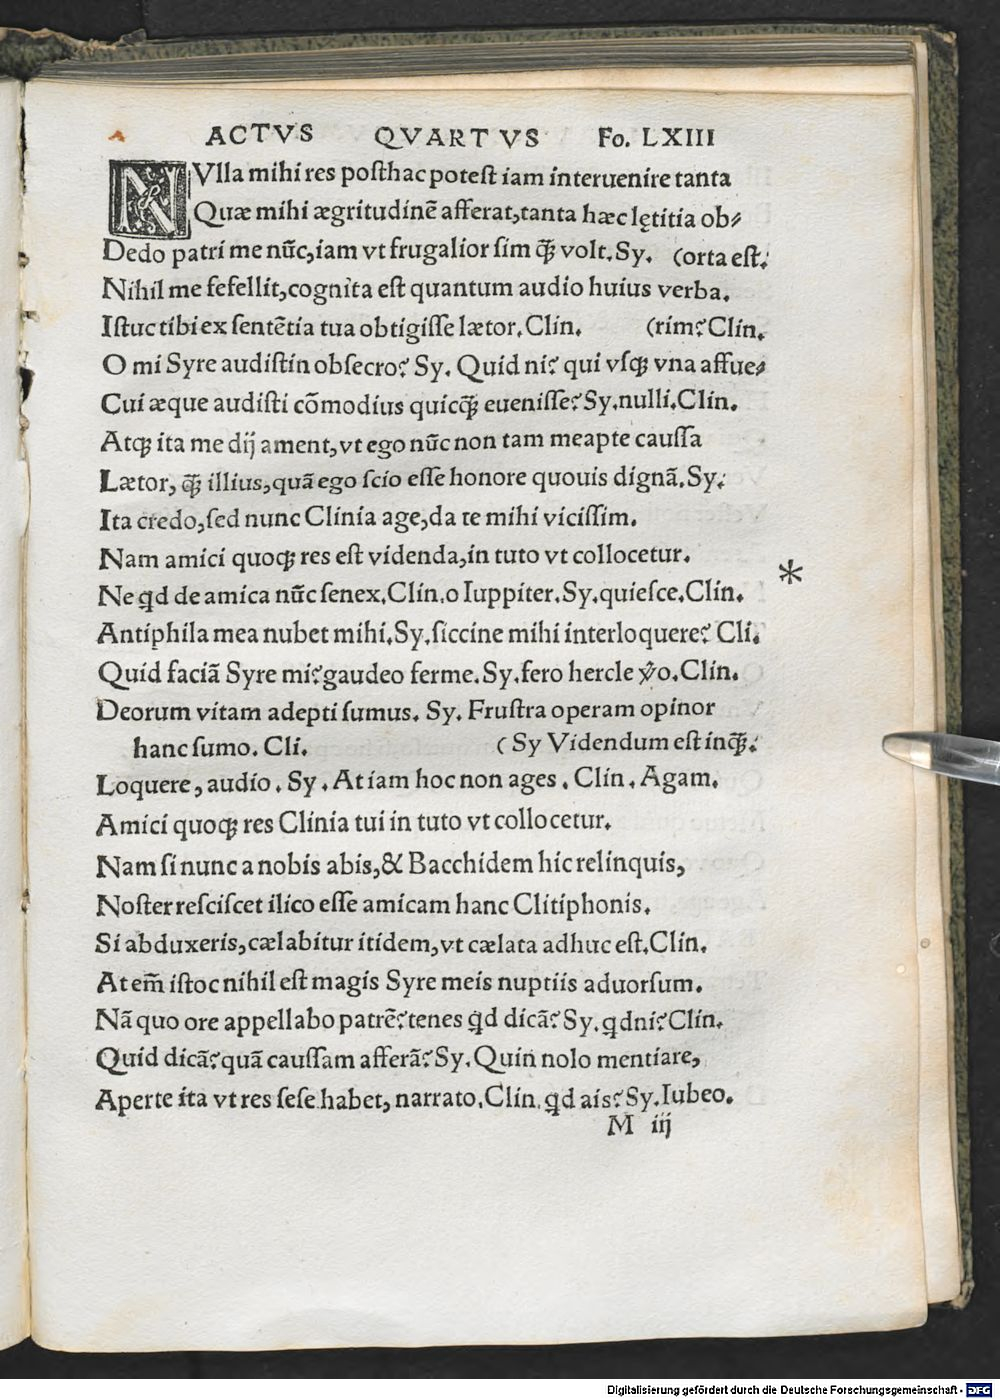 ACTVS QVARTVS Fo. LXIII
NVlla mihi res posthac potest iam interuenire tanta
Quæ mihi ægritudinē afferat, tanta hæc lętitia ob⸗
Dedo patri me nūc, iam vt frugalior sim ꝙ̃ volt. Sy. (orta est:
Nihil me fefellit, cognita est quantum audio huius verba.
Istuc tibi ex sentētia tua obtigisse lætor. Clin. (rim? Clin.
O mi Syre audistin obsecro? Sy. Quid ni? qui vsq; vna affue⸗
Cui æque audisti cōmodius quicꝙ̃ euenisse? Sy. nulli. Clin.
Atq; ita me dij ament, vt ego nūc non tam meapte caussa
Lætor, ꝙ̃ illius, quā ego scio esse honore quouis dignā. Sy:
Ita credo, sed nunc Clinia age, da te mihi vicissim.
Nam amici quoq; res est videnda, in tuto vt collocetur.
Ne qd de amica nūc senex. Clin. o Iuppiter. Sy. quiesce. Clin. *
Antiphila mea nubet mihi. Sy. siccine mihi interloquere? Cli.
Quid faciā Syre mi? gaudeo ferme. Sy. fero hercle v̊o. Clin.
Deorum vitam adepti sumus. Sy. Frustra operam opinor
hanc sumo. Cli. (Sy Videndum est inꝙ̃:
Loquere, audio. Sy. At iam hoc non ages. Clin. Agam.
Amici quoq; res Clinia tui in tuto vt collocetur.
Nam si nunc a nobis abis, & Bacchidem hic relinquis,
Noster resciscet ilico esse amicam hanc Clitiphonis.
Si abduxeris, cælabitur itidem, vt cælata adhuc est. Clin.
At em̄ istoc nihil est magis Syre meis nuptiis aduorsum.
Nā quo ore appellabo patrē? tenes qd dicā? Sy. qdni? Clin.
Quid dicā? quā caussam afferā? Sy. Quin nolo mentiare,
Aperte ita vt res sese habet, narrato. Clin. qd ais? Sy. Iubeo.
M iij
Digitalisierung gefördert durch die Deutsche Forschungsgemeinschaft - DFG